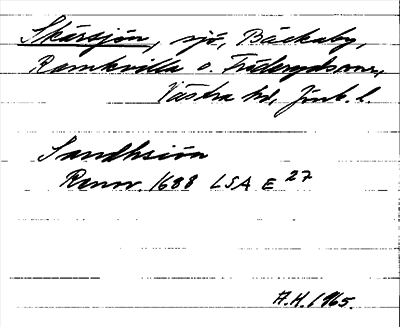 Skärsjön, sjö, Bäckaby,
Ramkvilla o. Fröderyds snr,
Västra hd, Jönk. l.
Sandhsiön
Rann. 1688 LSA E 27
A.H. 1965.